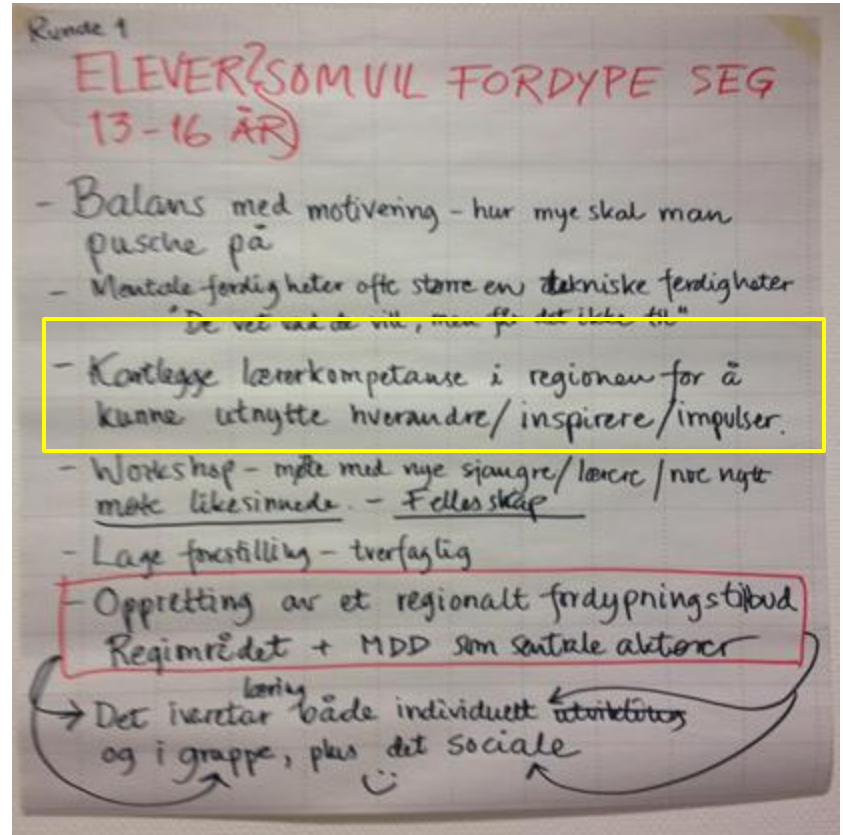 Runde 1
ELEVER? SOM VIL FORDYPE SEG
13-16 ÅR
- Balans med motivering - hur mye skal man
pusche på
- Mentale ferdigheter ofte større en tekniske ferdigheter
"De vet vad de vill, men får det ikke til"
- Kartlegge lærerkompetanse i regionen for å
kunne utnytte hverandre/inspirere/impulser.
- Workshop - møte med nye sjangre/lærere/noe nytt
møte likesinnede. - Fellesskap
- Lage forestilling - tverfaglig
- Oppretting av et regionalt fordypningstilbud
Regimrådet + MDD som sentrale aktører
læring
→ Det ivaretar både individuelt utvikling
og i gruppe, plus det sociale